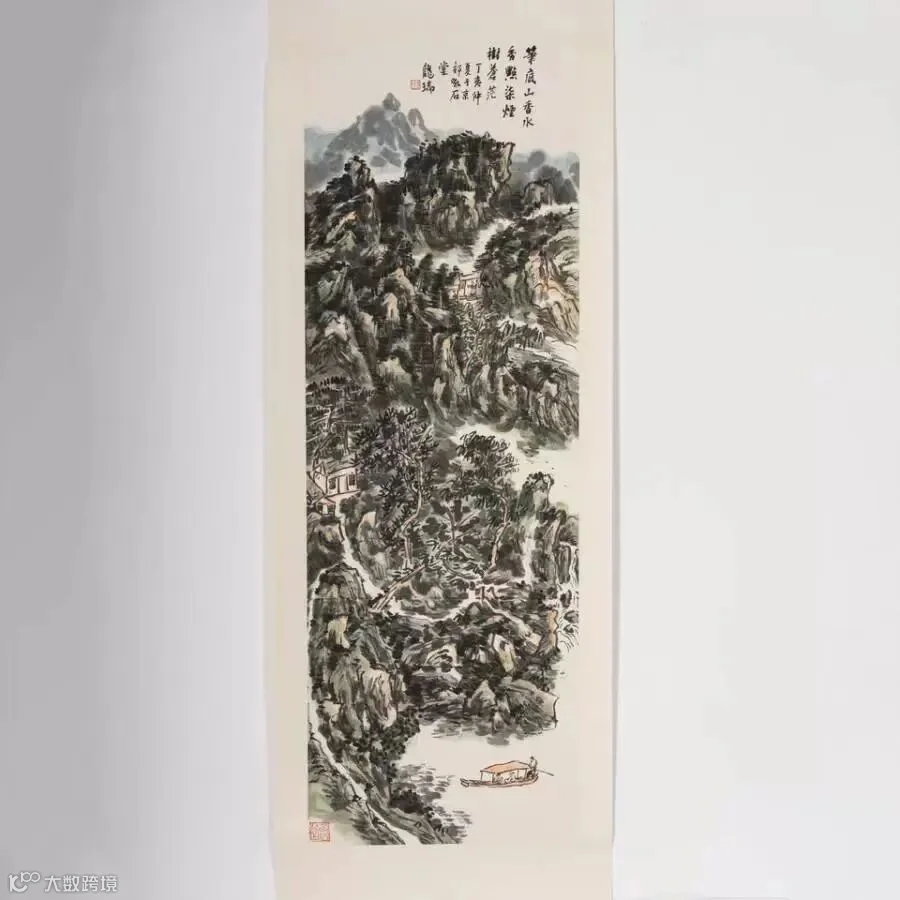 筆底山香水
香點染煙
樹蒼茫
丁亥仲
夏于京
郊石
堂
龍瑞
大数跨境